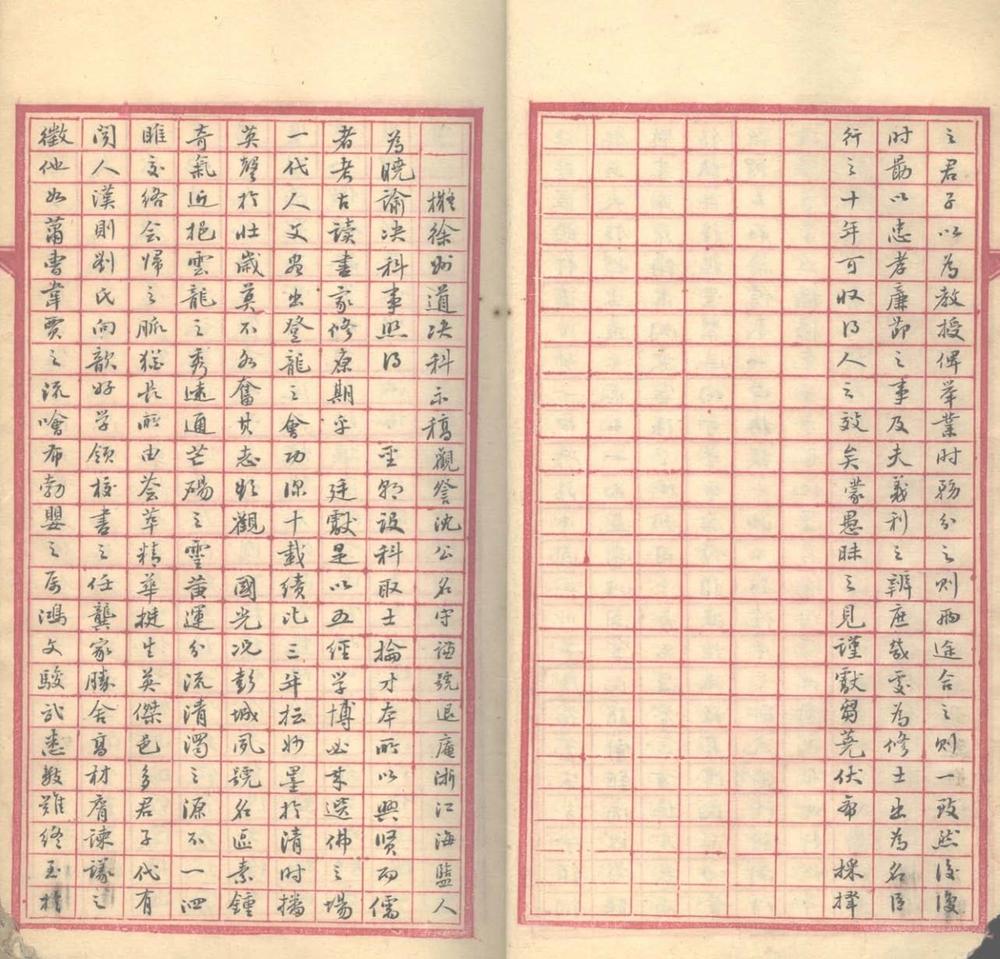 之君子以為教授俾举業时務分之则兩途合之则一致然後復
时勗以忠孝廉節之事及夫義利之辨庶幾處為修士出為名臣
行之十年可收得人之效矣蒙愚昧之見謹獻芻蕘伏希 採擇
擬徐州道决科示稿觀詧沈公名守謙號退庵浙江海盬人
為曉諭决科事照得 聖朝設科取士掄才本所以興贤而儒
者考古讀書家修原期乎 廷獻是以五經学博必来選佛之場
一代人文尽出登龍之會功深十載績比三年抎妙墨於清时播
英聲於壮歲莫不各奮其志欣觀 國光况彭城夙號名區素鍾
奇氣近挹雲龍之秀遠通芒碭之靈黄運分流清濁之源不一泗
睢交络会歸之脈猶長所由荟萃精華挺生英傑邑多君子代有
闻人漢則劉氏向歆好学領校書之任龔家勝舍高材膺諫議之
徵他如蕭曹韋賈之流噲布勃嬰之属鴻文駿武悉数難终至於